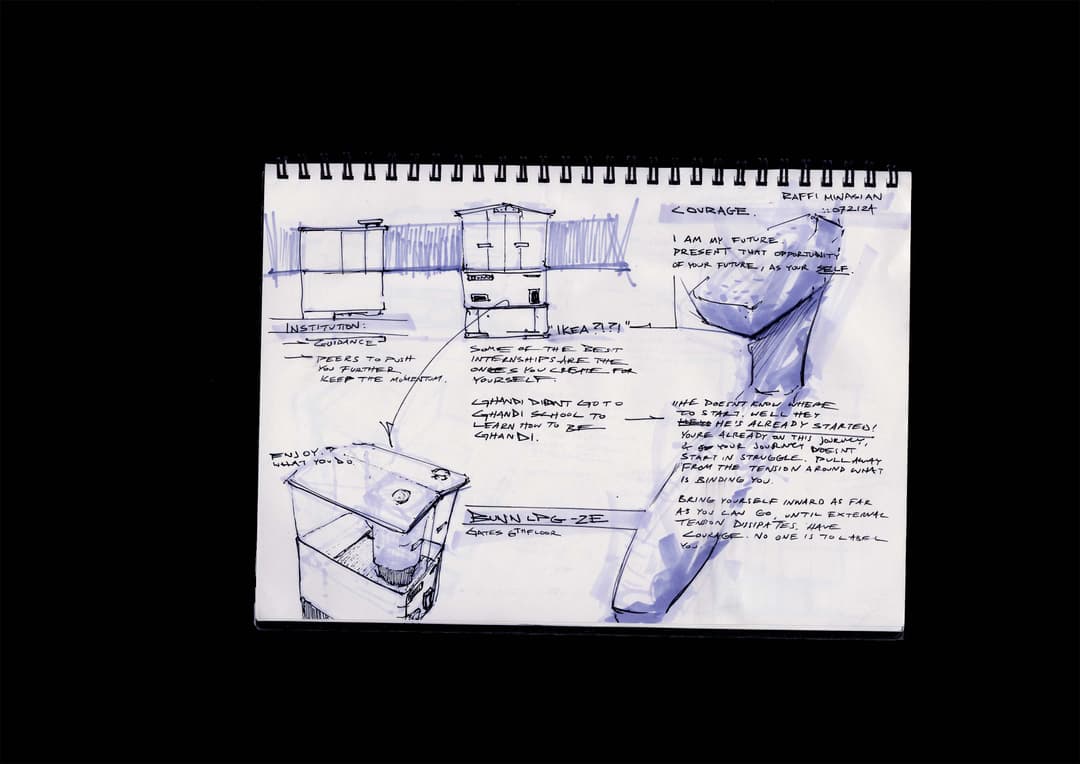 RAFFI MINASIAN
::072124
COURAGE.
I AM MY FUTURE.
PRESENT THAT OPPORTUNITY
OF YOUR FUTURE, AS YOUR SELF.
INSTITUTION:
GUIDANCE
PEERS TO PUSH
YOU FURTHER.
KEEP THE MOMENTUM.
"IKEA?!?!"
SOME OF THE BEST
INTERNSHIPS ARE THE
ONES YOU CREATE FOR
YOURSELF.
GHANDI DIDNT GO TO
GHANDI SCHOOL TO
LEARN HOW TO BE
GHANDI.
"HE DOESNT KNOW WHERE
TO START. WELL HEY
HE'S ALREADY STARTED!
YOU'RE ALREADY ON THIS JOURNEY,
& YOUR JOURNEY DOESNT
START IN STRUGGLE. PULL AWAY
FROM THE TENSION AROUND WHAT
IS BINDING YOU.
BRING YOURSELF INWARD AS FAR
AS YOU CAN GO, UNTIL EXTERNAL
TENSION DISSIPATES. HAVE
COURAGE. NO ONE IS TO LABEL
YOU.
ENJOY
WHAT YOU DO
BUNN LPG-2E
GATES 6TH FLOOR